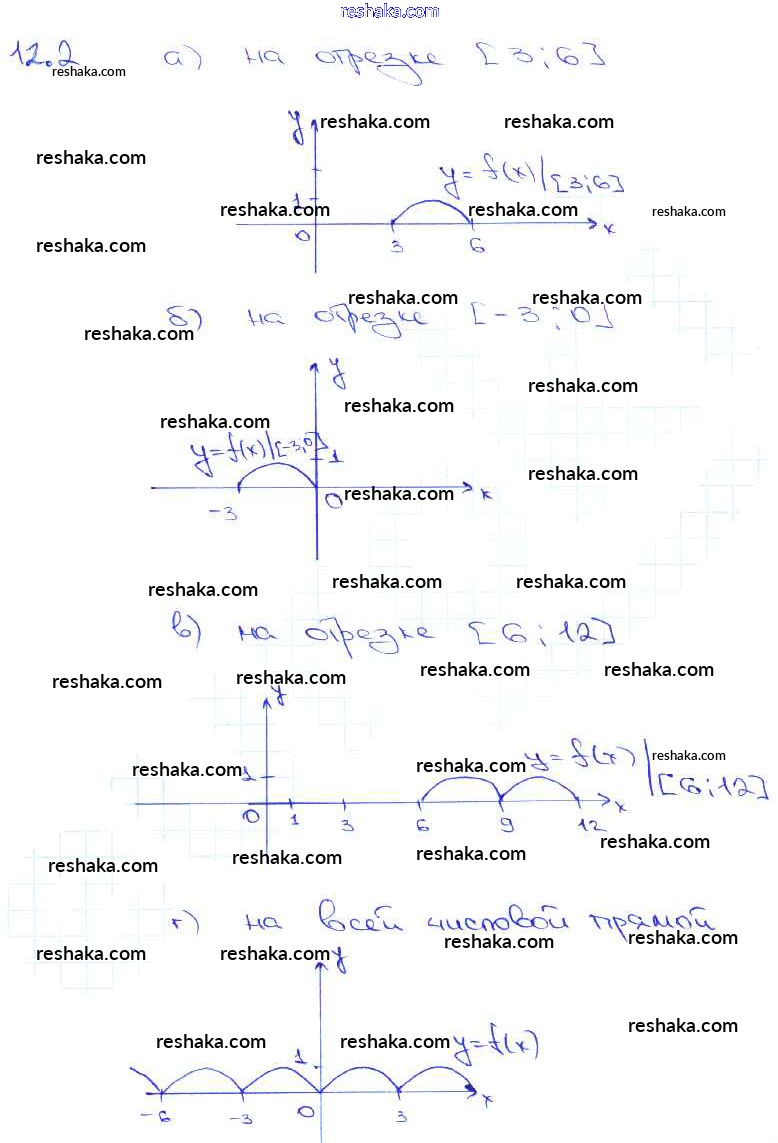 reshaka.com
12.2 а) на отрезке [3;6]
reshaka.com
y reshaka.com reshaka.com
reshaka.com
y = f(x)|[3;6]
1
reshaka.com reshaka.com reshaka.com
0 3 6 x
reshaka.com
reshaka.com reshaka.com
б) на отрезке [-3;0]
reshaka.com
y
reshaka.com
reshaka.com
reshaka.com
y=f(x)|[-3;0] 1
reshaka.com
reshaka.com
-3 0 x
reshaka.com reshaka.com reshaka.com
в) на отрезке [6;12]
reshaka.com reshaka.com reshaka.com reshaka.com
y
y = f(x)|[6;12]
reshaka.com reshaka.com reshaka.com
1
0 1 3 6 9 12 x
reshaka.com
reshaka.com reshaka.com reshaka.com
г) на всей числовой прямой
reshaka.com reshaka.com
reshaka.com reshaka.com
y
reshaka.com
reshaka.com reshaka.com
y=f(x)
1
-6 -3 0 3 x